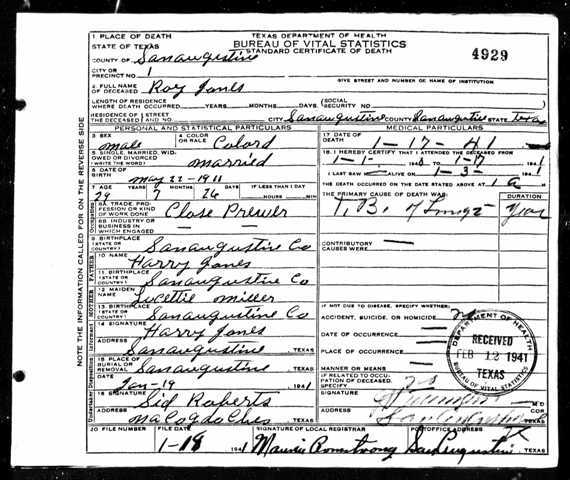 1 PLACE OF DEATH
STATE OF TEXAS
TEXAS DEPARTMENT OF HEALTH
BUREAU OF VITAL STATISTICS
STANDARD CERTIFICATE OF DEATH
4929
COUNTY OF Sanaugustine
CITY OR PRECINCT NO. 1
GIVE STREET AND NUMBER OR NAME OF INSTITUTION
2 FULL NAME OF DECEASED Roy Jones
LENGTH OF RESIDENCE WHERE DEATH OCCURRED YEARS MONTHS DAYS (SOCIAL SECURITY NO.)
RESIDENCE OF THE DECEASED STREET AND NO. CITY Sanaugustine COUNTY Sanaugustine STATE Texas
PERSONAL AND STATISTICAL PARTICULARS
MEDICAL PARTICULARS
3 SEX male
4 COLOR OR RACE Colord
17 DATE OF DEATH 1-17-41
5 SINGLE, MARRIED, WIDOWED OR DIVORCED (WRITE THE WORD) married
18. I HEREBY CERTIFY THAT I ATTENDED THE DECEASED FROM 1-1- 1941 1-17 1941
6 DATE OF BIRTH may 22-1911
I LAST SAW ALIVE ON 1-3- 1941
7 AGE YEARS MONTHS DAYS IF LESS THAN 1 DAY
29 7 26 HOURS MIN.
THE DEATH OCCURRED ON THE DATE STATED ABOVE AT 1 a M
THE PRIMARY CAUSE OF DEATH WAS: DURATION
8A TRADE, PROFESSION OR KIND OF WORK DONE Close Presser
T.B. of Lungs
8B INDUSTRY OR BUSINESS IN WHICH ENGAGED — —
9 BIRTHPLACE (STATE OR COUNTRY) Sanaugustine Co
CONTRIBUTORY CAUSES WERE:
FATHER
10 NAME Harry Jones
11 BIRTHPLACE (STATE OR COUNTRY) Sanaugustine Co
MOTHER
12 MAIDEN NAME Lucettie Miller
IF NOT DUE TO DISEASE, SPECIFY WHETHER:
ACCIDENT, SUICIDE, OR HOMICIDE no
13 BIRTHPLACE (STATE OR COUNTRY) Sanaugustine Co
DATE OF OCCURRENCE —
14 SIGNATURE Harry Jones
ADDRESS Sanaugustine TEXAS
PLACE OF OCCURRENCE —
15 PLACE OF BURIAL OR REMOVAL Sanaugustine TEXAS
MANNER OR MEANS
DATE Jan-19 1941
IF RELATED TO OCCUPATION OF DECEASED, SPECIFY no
16 SIGNATURE Sid Roberts
SIGNATURE M D
ADDRESS TEXAS
20 FILE NUMBER FILE DATE 1-18 1941
SIGNATURE OF LOCAL REGISTRAR Armstrong
POSTOFFICE ADDRESS San Augustine TEXAS
DEPARTMENT OF HEALTH
RECEIVED
FEB 12 1941
TEXAS
BUREAU OF VITAL STATISTICS
NOTE THE INFORMATION CALLED FOR ON THE REVERSE SIDE